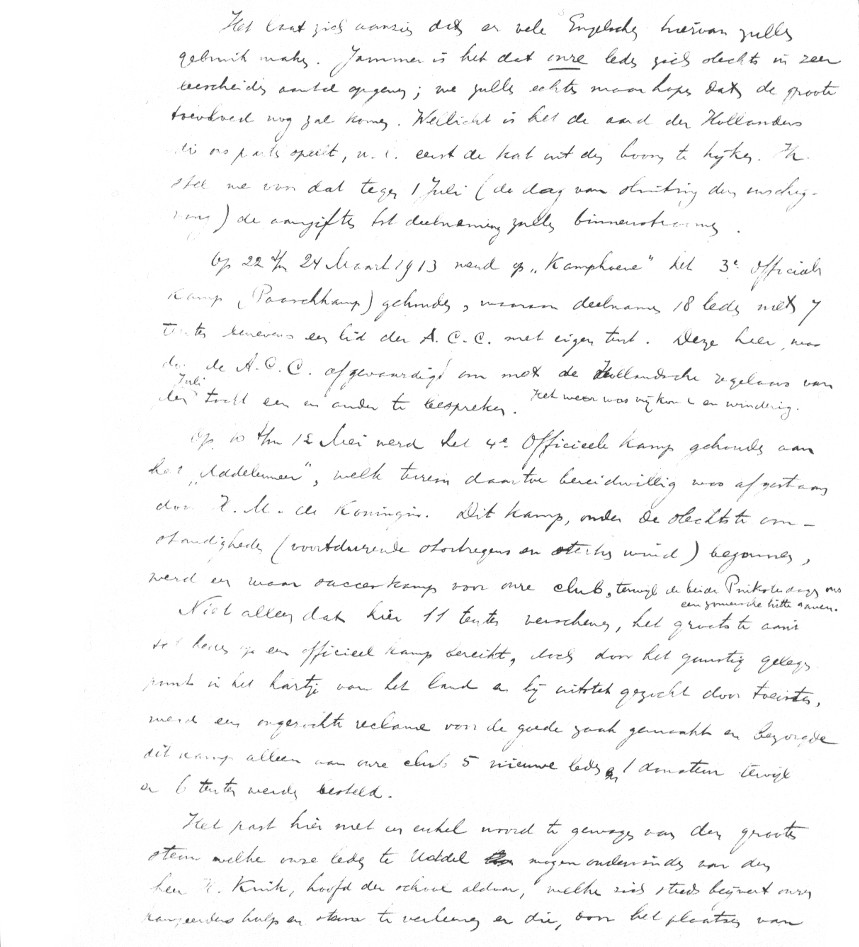 Het laat zich aanzien dat er vele Engelschen hiervan zullen
gebruik maken. Jammer is het dat onze leden zich slechts in zeer
bescheiden aantal opgeven; we zullen echter maar hopen dat de groote
toevloed nog zal komen. Wellicht is het de aard der Hollanders
die ons parten speelt, n.l. eerst de kat uit den boom te kijken. Ik
stel me voor dat tegen 1 Juli (de dag van sluiting der inschrij-
ving) de aangiften tot deelneming zullen binnenstroomen.
Op 22 t/m 24 Maart 1913 werd op "Kamphoeve" het 3e Officieele
Kamp (Paaschkamp) gehouden, waaraan deelnamen 18 leden met 7
tenten benevens een lid der A.C.C. met eigen tent. Deze heer was
door de A.C.C. afgevaardigd om met de Hollandsche regelaars van
den Juli tocht een en ander te bespreken. Het weer was vrij koud en winderig.
Op 10 t/m 12 Mei werd het 4e Officieele Kamp gehouden aan
het "Uddelermeer", welk terrein daartoe bereidwillig was afgestaan
door H.M. de Koningin. Dit kamp, onder de slechtste om-
standigheden (voortdurende stortregens en sterke wind) begonnen,
werd een waar succes kamp voor onze club, terwijl de beide Pinksterdagen ons
een zomersche hitte gaven.
Niet alleen dat hier 11 tenten verschenen, het grootste aantal
tot heden op een officieel kamp bereikt, doch door het gunstig gelegen
punt in het hartje van het land en bij uitstek gezocht door toeristen,
werd een ongezochte reclame voor de goede zaak gemaakt en bezorgde
dit kamp alleen aan onze club 5 nieuwe leden en 1 donateur terwijl
er 6 tenten werden besteld.
Het past hier met een enkel woord te gewagen van den grooten
steun welke onze leden te Uddel mogen ondervinden van den
heer H. Kruik, hoofd der school aldaar, welke zich steeds beijvert onze
kampeerders hulp en steun te verleenen en die, voor het plaatsen van